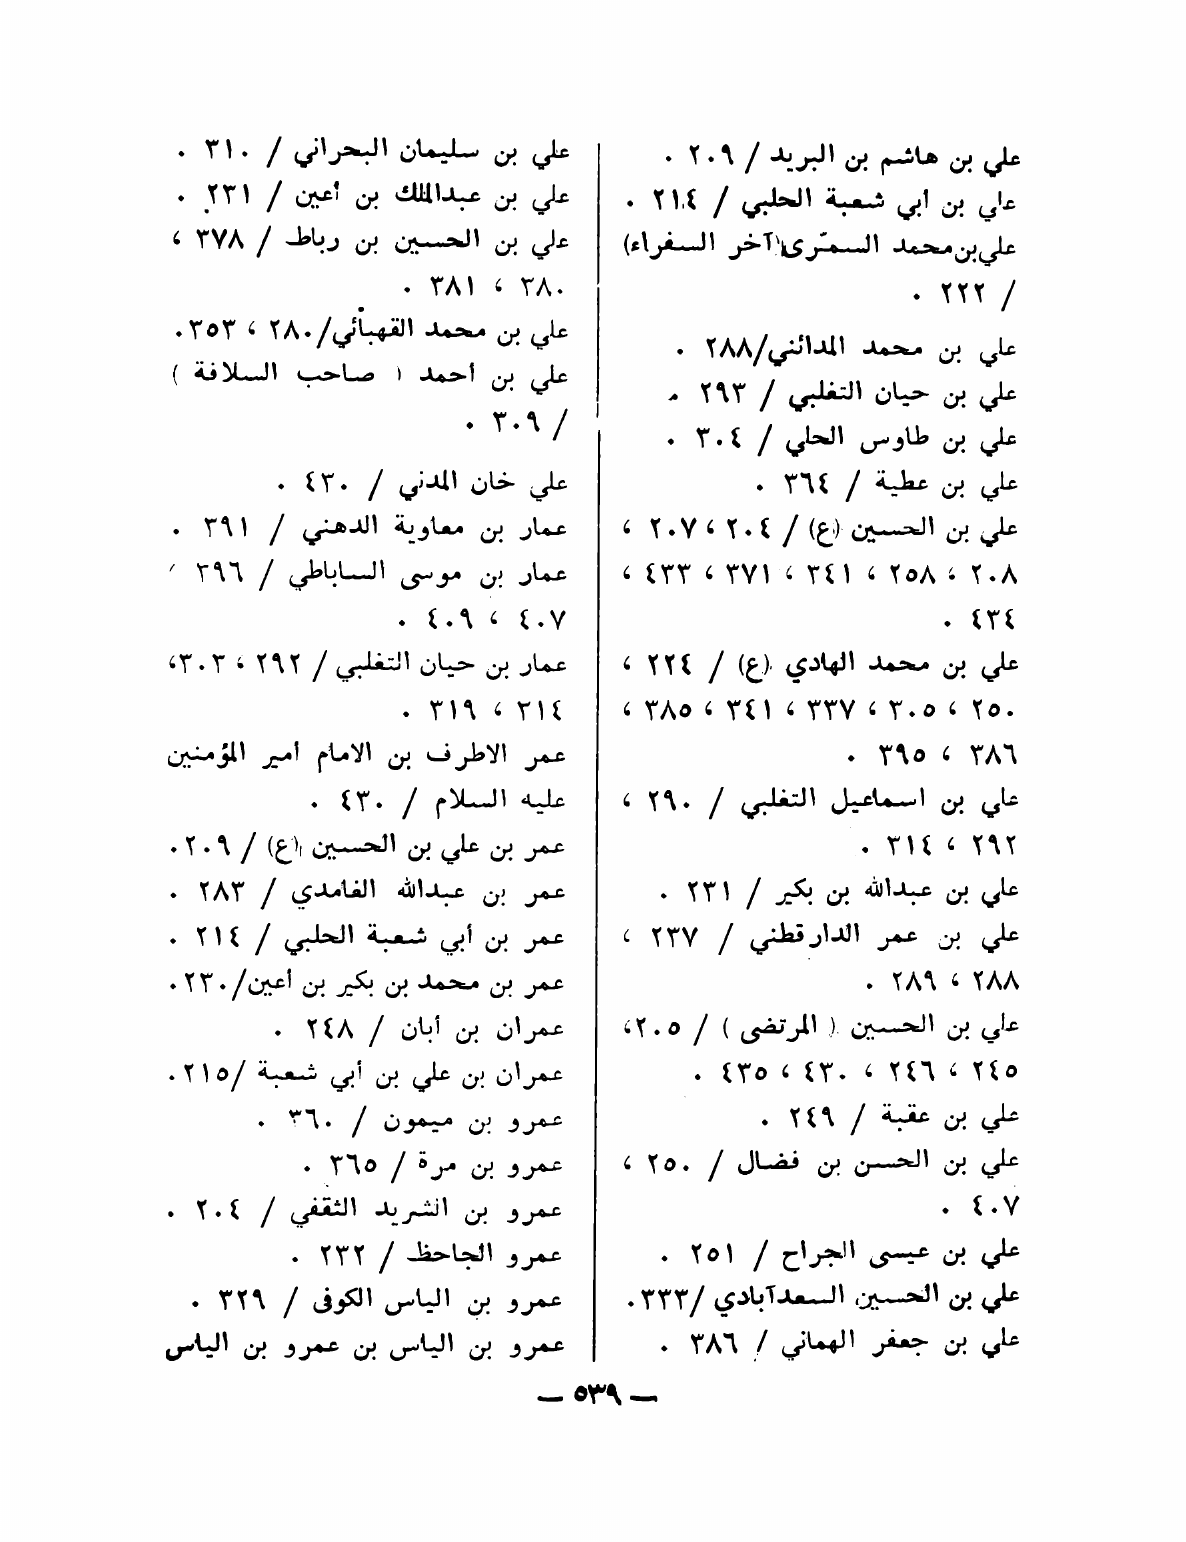 علي بن هاشم بن البريد / ٢٠٩ .
علي بن أبي شعبة الحلبي / ٢١٤ .
علي بن محمد السمّري (آخر السفراء)
/ ٢٢٢ .
علي بن محمد المدائني/٢٨٨ .
علي بن حيان التغلبي / ٢٩٣ .
علي بن طاوس الحلي / ٣٠٤ .
علي بن عطية / ٣٦٤ .
علي بن الحسين (ع) / ٢٠٤ ، ٢٠٧ ،
٢٠٨ ، ٢٥٨ ، ٣٤١ ، ٣٧١ ، ٤٣٣ ،
٤٣٤ .
علي بن محمد الهادي (ع) / ٢٢٤ ،
٢٥٠ ، ٣٠٥ ، ٣٣٧ ، ٣٤١ ، ٣٨٥ ،
٣٨٦ ، ٣٩٥ .
علي بن اسماعيل التغلبي / ٢٩٠ ،
٢٩٢ ، ٣١٤ .
علي بن عبدالله بن بكير / ٢٣١ .
علي بن عمر الدارقطني / ٢٣٧ ،
٢٨٨ ، ٢٨٩ .
علي بن الحسين ( المرتضى ) / ٢٠٥ ،
٢٤٥ ، ٢٤٦ ، ٤٣٠ ، ٤٣٥ .
علي بن عقبة / ٢٤٩ .
علي بن الحسن بن فضال / ٢٥٠ ،
٤٠٧ .
علي بن عيسى الجراح / ٢٥١ .
علي بن الحسين السعدآبادي /٣٣٣ .
علي بن جعفر الهماني / ٣٨٦ .
علي بن سليمان البحراني / ٣١٠ .
علي بن عبدالملك بن أعين / ٢٣١ .
علي بن الحسين بن رباط / ٣٧٨ ،
٣٨٠ ، ٣٨١ .
علي بن محمد القهبائي/٢٨٠ ، ٣٥٣ .
علي بن أحمد ( صاحب السلافة )
/ ٣٠٩ .
علي خان المدني / ٤٣٠ .
عمار بن معاوية الدهني / ٣٩١ .
عمار بن موسى الساباطي / ٣٩٦ ،
٤٠٧ ، ٤٠٩ .
عمار بن حيان التغلبي / ٢٩٢ ، ٣٠٣ ،
٣١٤ ، ٣١٩ .
عمر الاطرف بن الامام أمير المؤمنين
عليه السلام / ٤٣٠ .
عمر بن علي بن الحسين (ع) / ٢٠٩ .
عمر بن عبدالله الغامدي / ٢٨٣ .
عمر بن أبي شعبة الحلبي / ٢١٤ .
عمر بن محمد بن بكير بن أعين/٢٣٠ .
عمران بن أبان / ٢٤٨ .
عمران بن علي بن أبي شعبة /٢١٥ .
عمرو بن ميمون / ٣٦٠ .
عمرو بن مرة / ٣٦٥ .
عمرو بن الشريد الثقفي / ٢٠٤ .
عمرو الجاحظ / ٢٣٢ .
عمرو بن الياس الكوفى / ٣٢٩ .
عمرو بن الياس بن عمرو بن الياس
— ٥٣٩ —